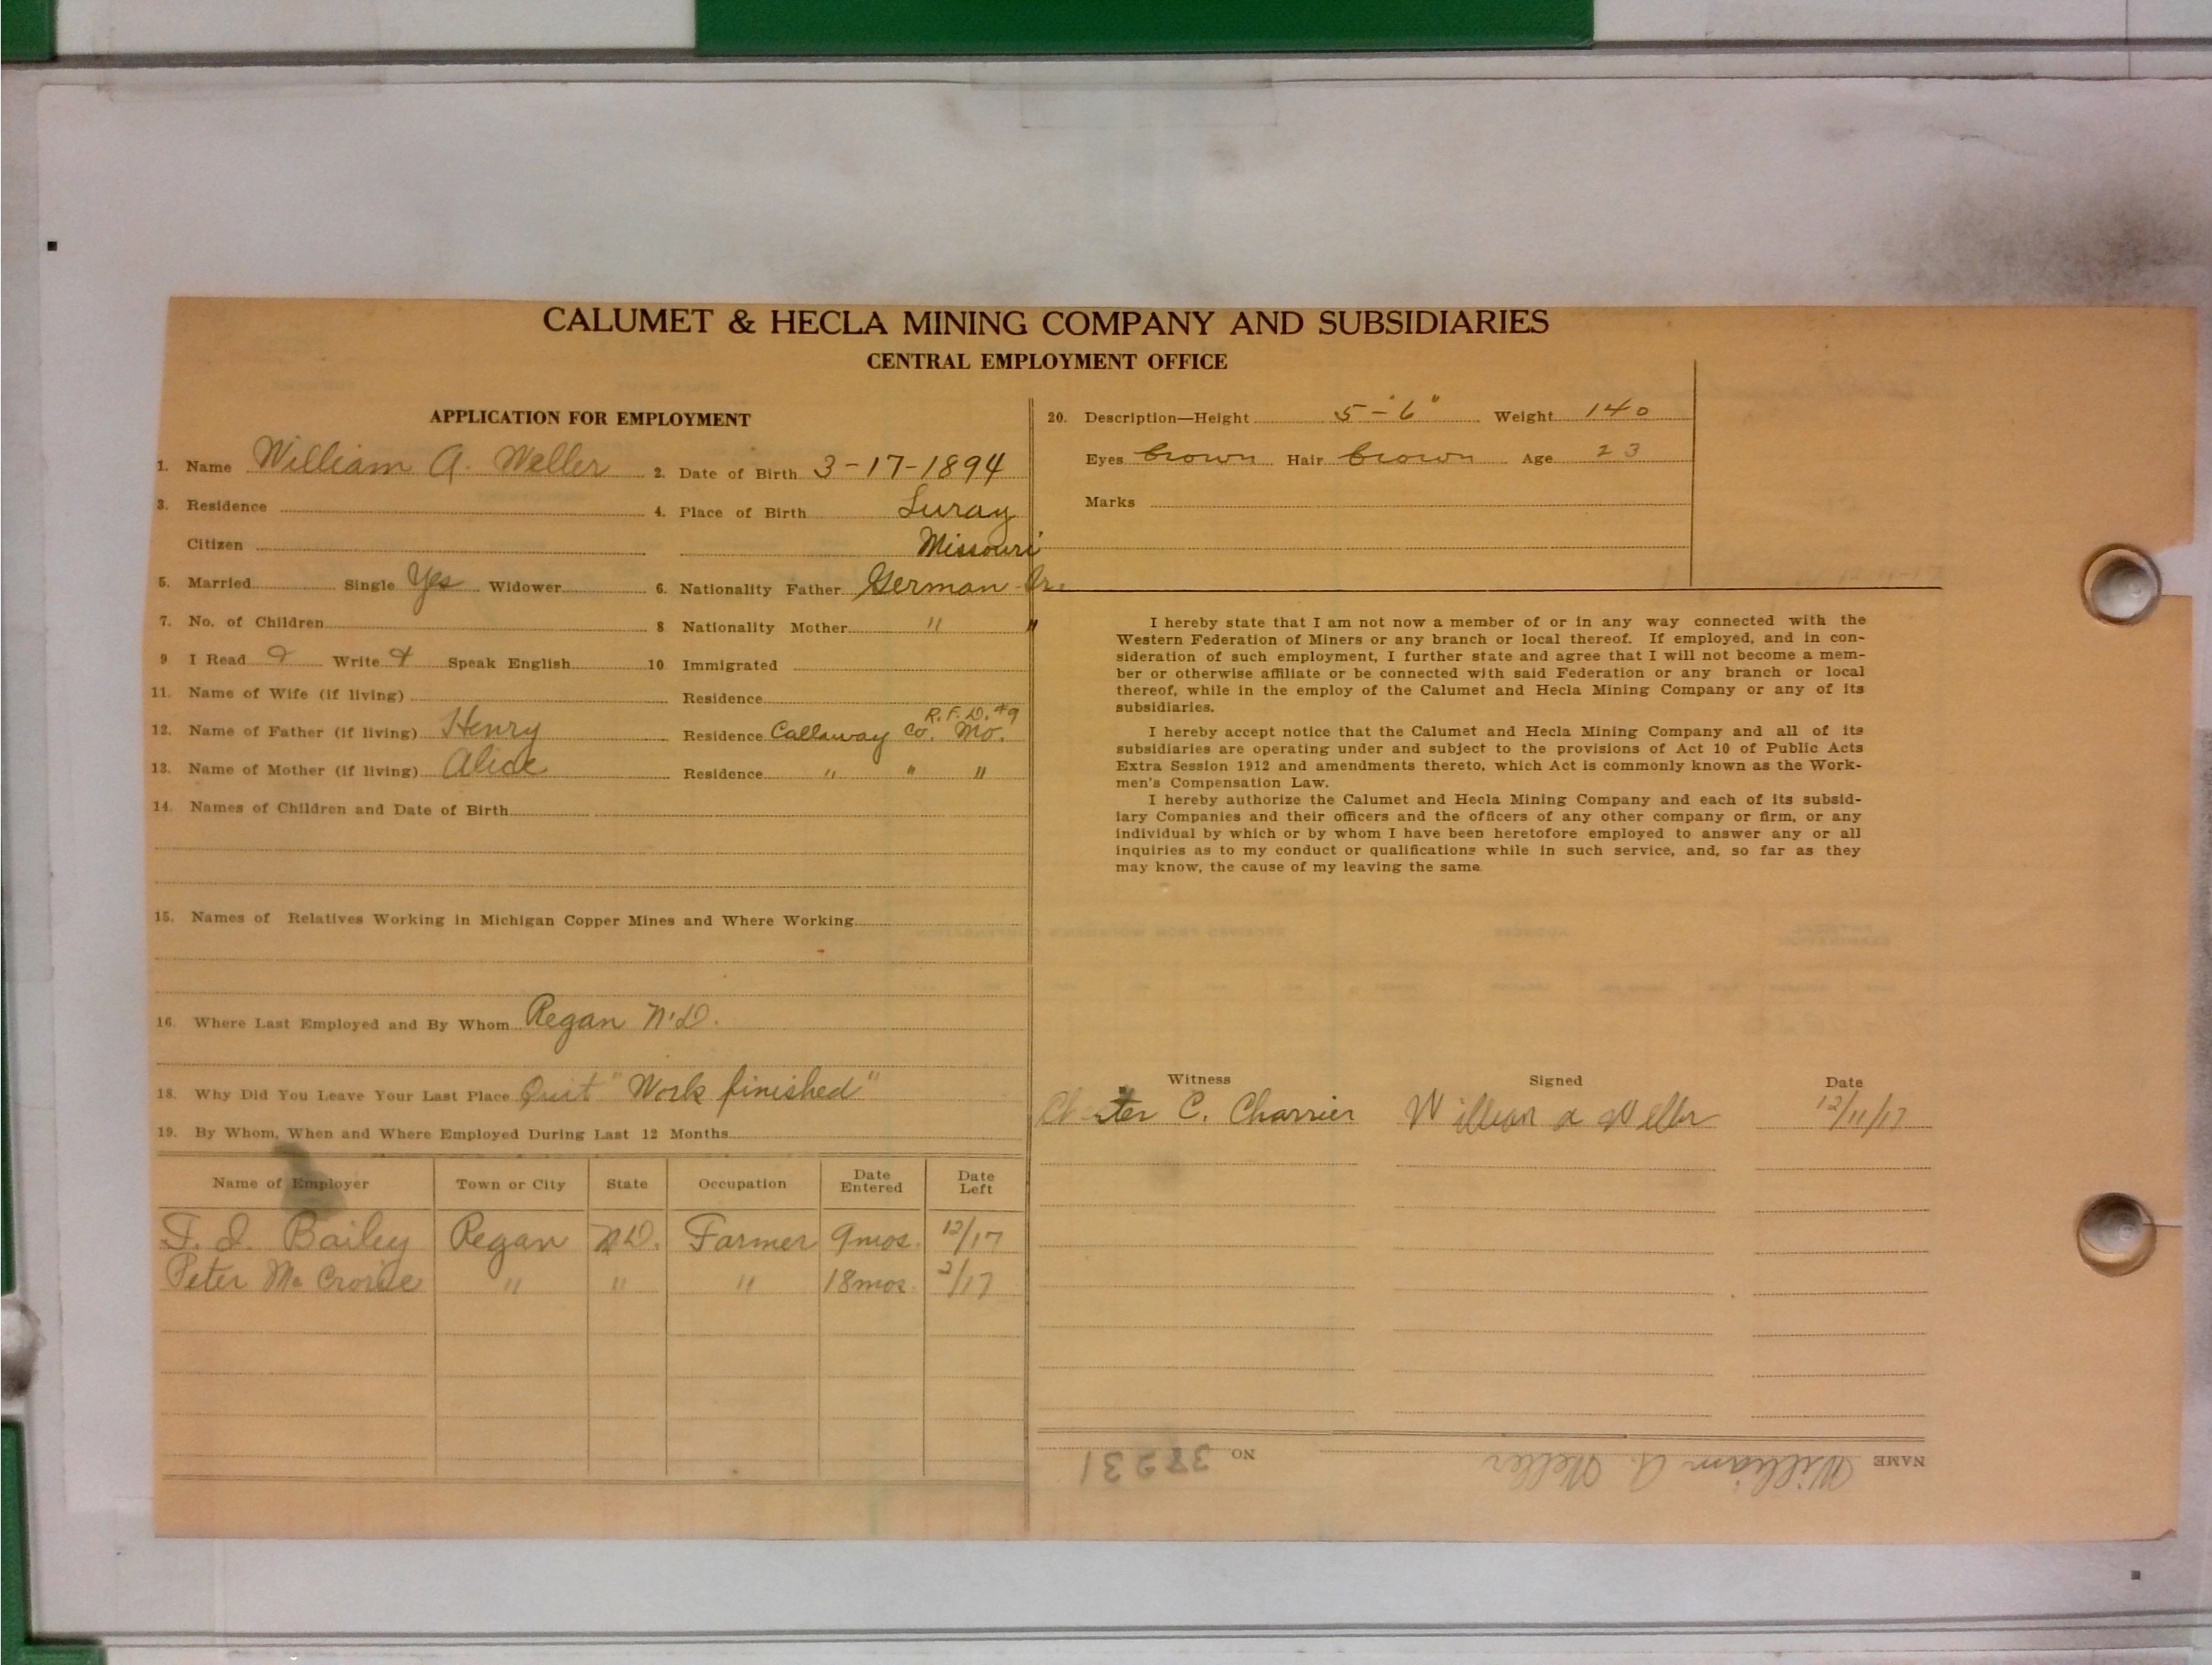 CALUMET & HECLA MINING COMPANY AND SUBSIDIARIES
CENTRAL EMPLOYMENT OFFICE
APPLICATION FOR EMPLOYMENT
1. Name William A. Weller 2. Date of Birth 3-17-1894
3. Residence 4. Place of Birth Luray
Citizen Missouri
5. Married Single Yes Widower 6. Nationality Father German
7. No. of Children 8 Nationality Mother " "
9 I Read Write Speak English 10 Immigrated
11. Name of Wife (if living) Residence
R.F.D. #9
12. Name of Father (if living) Henry Residence Callaway Co. Mo.
13. Name of Mother (if living) Alice Residence " " "
14. Names of Children and Date of Birth
15. Names of Relatives Working in Michigan Copper Mines and Where Working
16. Where Last Employed and By Whom Regan N.D.
18. Why Did You Leave Your Last Place Quit "Work finished"
19. By Whom, When and Where Employed During Last 12 Months
Name of Employer Town or City State Occupation Date Entered Date Left
Bailey Regan N.D. Farmer 9mos. 12/17
Peter " " " 18mos. 2/17
20. Description—Height 5-6" Weight 140
Eyes brown Hair brown Age 23
Marks
I hereby state that I am not now a member of or in any way connected with the
Western Federation of Miners or any branch or local thereof. If employed, and in con-
sideration of such employment, I further state and agree that I will not become a mem-
ber or otherwise affiliate or be connected with said Federation or any branch or local
thereof, while in the employ of the Calumet and Hecla Mining Company or any of its
subsidiaries.
I hereby accept notice that the Calumet and Hecla Mining Company and all of its
subsidiaries are operating under and subject to the provisions of Act 10 of Public Acts
Extra Session 1912 and amendments thereto, which Act is commonly known as the Work-
men's Compensation Law.
I hereby authorize the Calumet and Hecla Mining Company and each of its subsid-
iary Companies and their officers and the officers of any other company or firm, or any
individual by which or by whom I have been heretofore employed to answer any or all
inquiries as to my conduct or qualifications while in such service, and, so far as they
may know, the cause of my leaving the same
Witness Signed Date
Chester C. Charrier William a Weller 12/11/17
NAME William A. Weller NO 37231